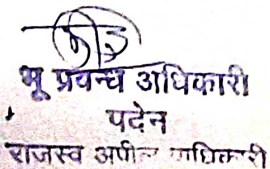 भू प्रबन्ध अधिकारी
पदेन
राजस्व अपील अधिकारी